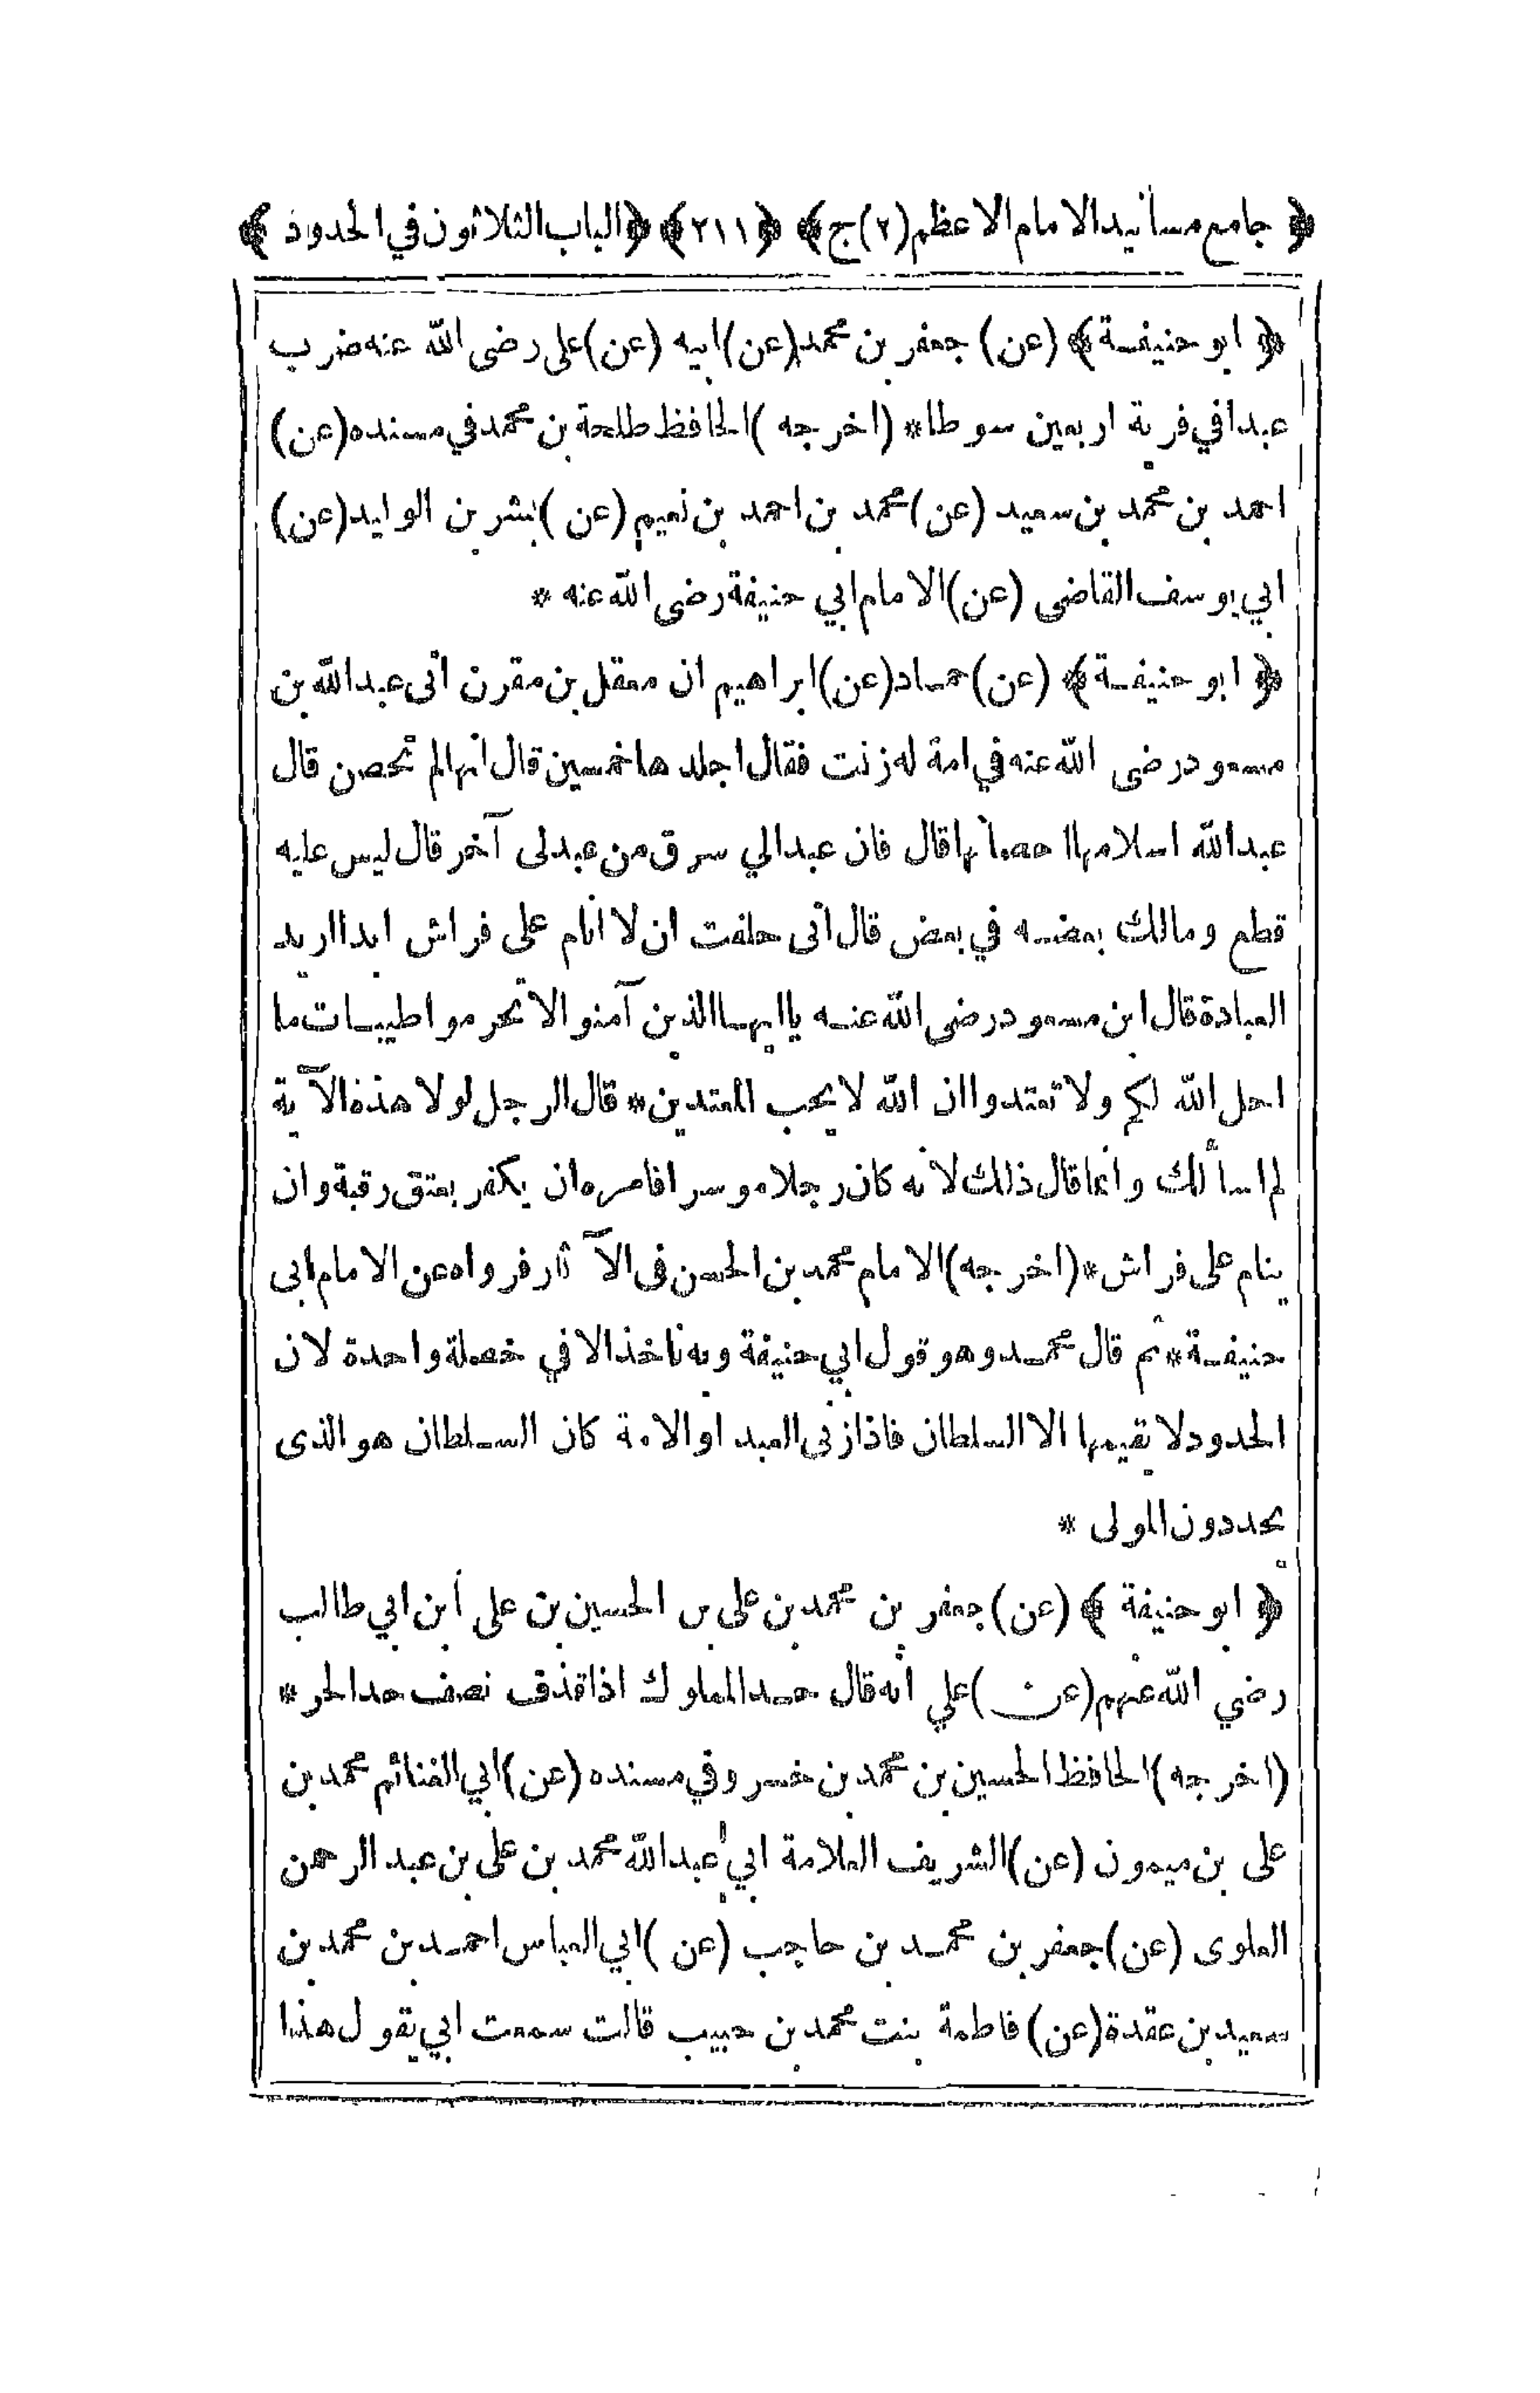 ﴿ جامع مسانيد الامام الاعظم (٢) ج ﴾ ﴿ ٢١١ ﴾ ﴿ الباب الثلاثون في الحدود ﴾
﴿ ابو حنيفة ﴾ (عن) جعفر بن محمد (عن) ابيه (عن) على رضى الله عنه ضرب
عبدا في فرية اربعين سوطا * (اخرجه) الحافظ طلحة بن محمد في مسنده (عن)
احمد بن محمد بن سعيد (عن) محمد بن احمد بن نعيم (عن) بشر بن الوليد (عن)
ابي يوسف القاضى (عن) الامام ابي حنيفة رضى الله عنه *
﴿ ابو حنيفة ﴾ (عن) حماد (عن) ابراهيم ان معقل بن مقرن أتى عبد الله بن
مسعود رضى الله عنه في امة له زنت فقال اجلدها خمسين قال انها لم تحصن قال
عبد الله اسلامها احصانها قال فان عبدا لي سرق من عبد لى آخر قال ليس عليه
قطع ومالك بعضه في بعض قال أنى حلفت ان لا انام على فراش ابدا اريد
العبادة قال ابن مسعود رضى الله عنه يا ايها الذين آمنوا لا تحرموا طيبات ما
احل الله لكم ولا تعتدوا ان الله لا يحب المعتدين * قال الرجل لولا هذه الآية
لم اسألك وانما قال ذلك لانه كان رجلا موسرا فامره ان يكفر بعتق رقبة وان
ينام على فراش * (اخرجه) الامام محمد بن الحسن فى الآثار فرواه عن الامام ابى
حنيفة * ثم قال محمد وهو قول ابي حنيفة وبه ناخذ الا في خصلة واحدة لان
الحدود لا يقيمها الا السلطان فاذا زنى العبد او الامة كان السلطان هو الذى
يحد دون المولى *
﴿ ابو حنيفة ﴾ (عن) جعفر بن محمد بن على بن الحسين بن على ابن ابي طالب
رضي الله عنهم (عن) علي أنه قال حد المملوك اذا قذف نصف حد الحر *
(اخرجه) الحافظ الحسين بن محمد بن خسرو في مسنده (عن) ابي الغنائم محمد بن
على بن ميمون (عن) الشريف العلامة ابي عبد الله محمد بن على بن عبد الرحمن
العلوى (عن) جعفر بن محمد بن حاجب (عن) ابي العباس احمد بن محمد بن
سعيد بن عقدة (عن) فاطمة بنت محمد بن حبيب قالت سمعت ابي يقول هذا